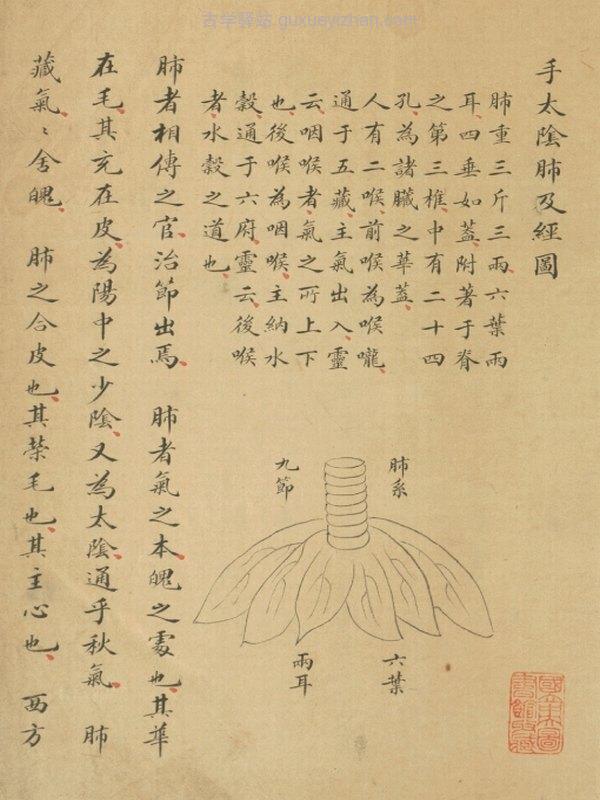 古学驿站 guxueyizhan.com
手太陰肺及經圖
肺重三斤三兩六葉兩
耳四垂如蓋附著于脊
之第三椎中有二十四
孔為諸臟之華蓋
人有二喉前喉為喉嚨
通于五藏主氣出入靈
云咽喉者氣之所上下
也後喉為咽喉主納水
穀通于六府靈云後喉
者水穀之道也
肺系
九節
六葉
兩耳
肺者相傳之官治節出焉 肺者氣之本魄之處也其華
在毛其充在皮為陽中之少陰又為太陰通乎秋氣 肺
藏氣〻舍魄 肺之合皮也其榮毛也其主心也 西方
國立中央圖
書館收藏